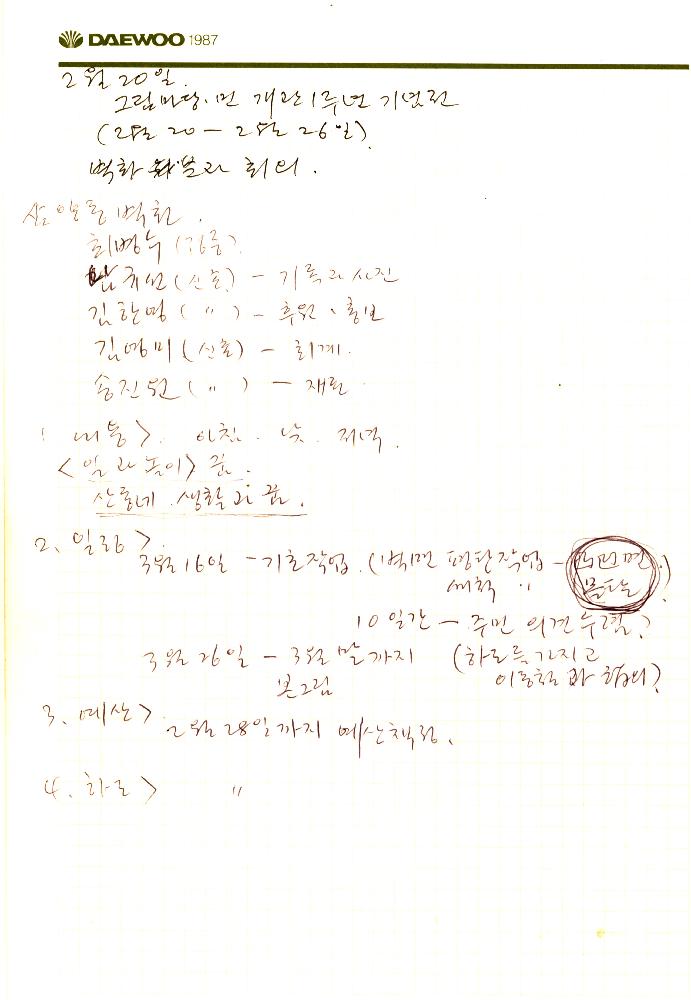 DAEWOO 1987
2월 20일.
그림마당·민 개관 1주년 기념전
(2월 20 - 2월 26일)
벽화 분과 회의.
삼양동 벽화.
최병수 (기층)
(신촌) - 기록과 사진
김한영 ( 〃 ) - 후원, 홍보
김영미 (신촌) - 회계.
송진원 ( 〃 ) - 재료
1. 내용>. 아침. 낮. 저녁.
<일과 놀이> 꿈.
산동네. 생활과 꿈.
2. 일정>.
3월 16일 - 기초작업. (벽면 평탄작업 -
세척 〃
10일간 - 주민 의견 수렴?
3월 26일 - 3월 말까지 (하도를 가지고
본그림
3. 예산>.
2월 28일까지 예산책정.
4. 하도> 〃